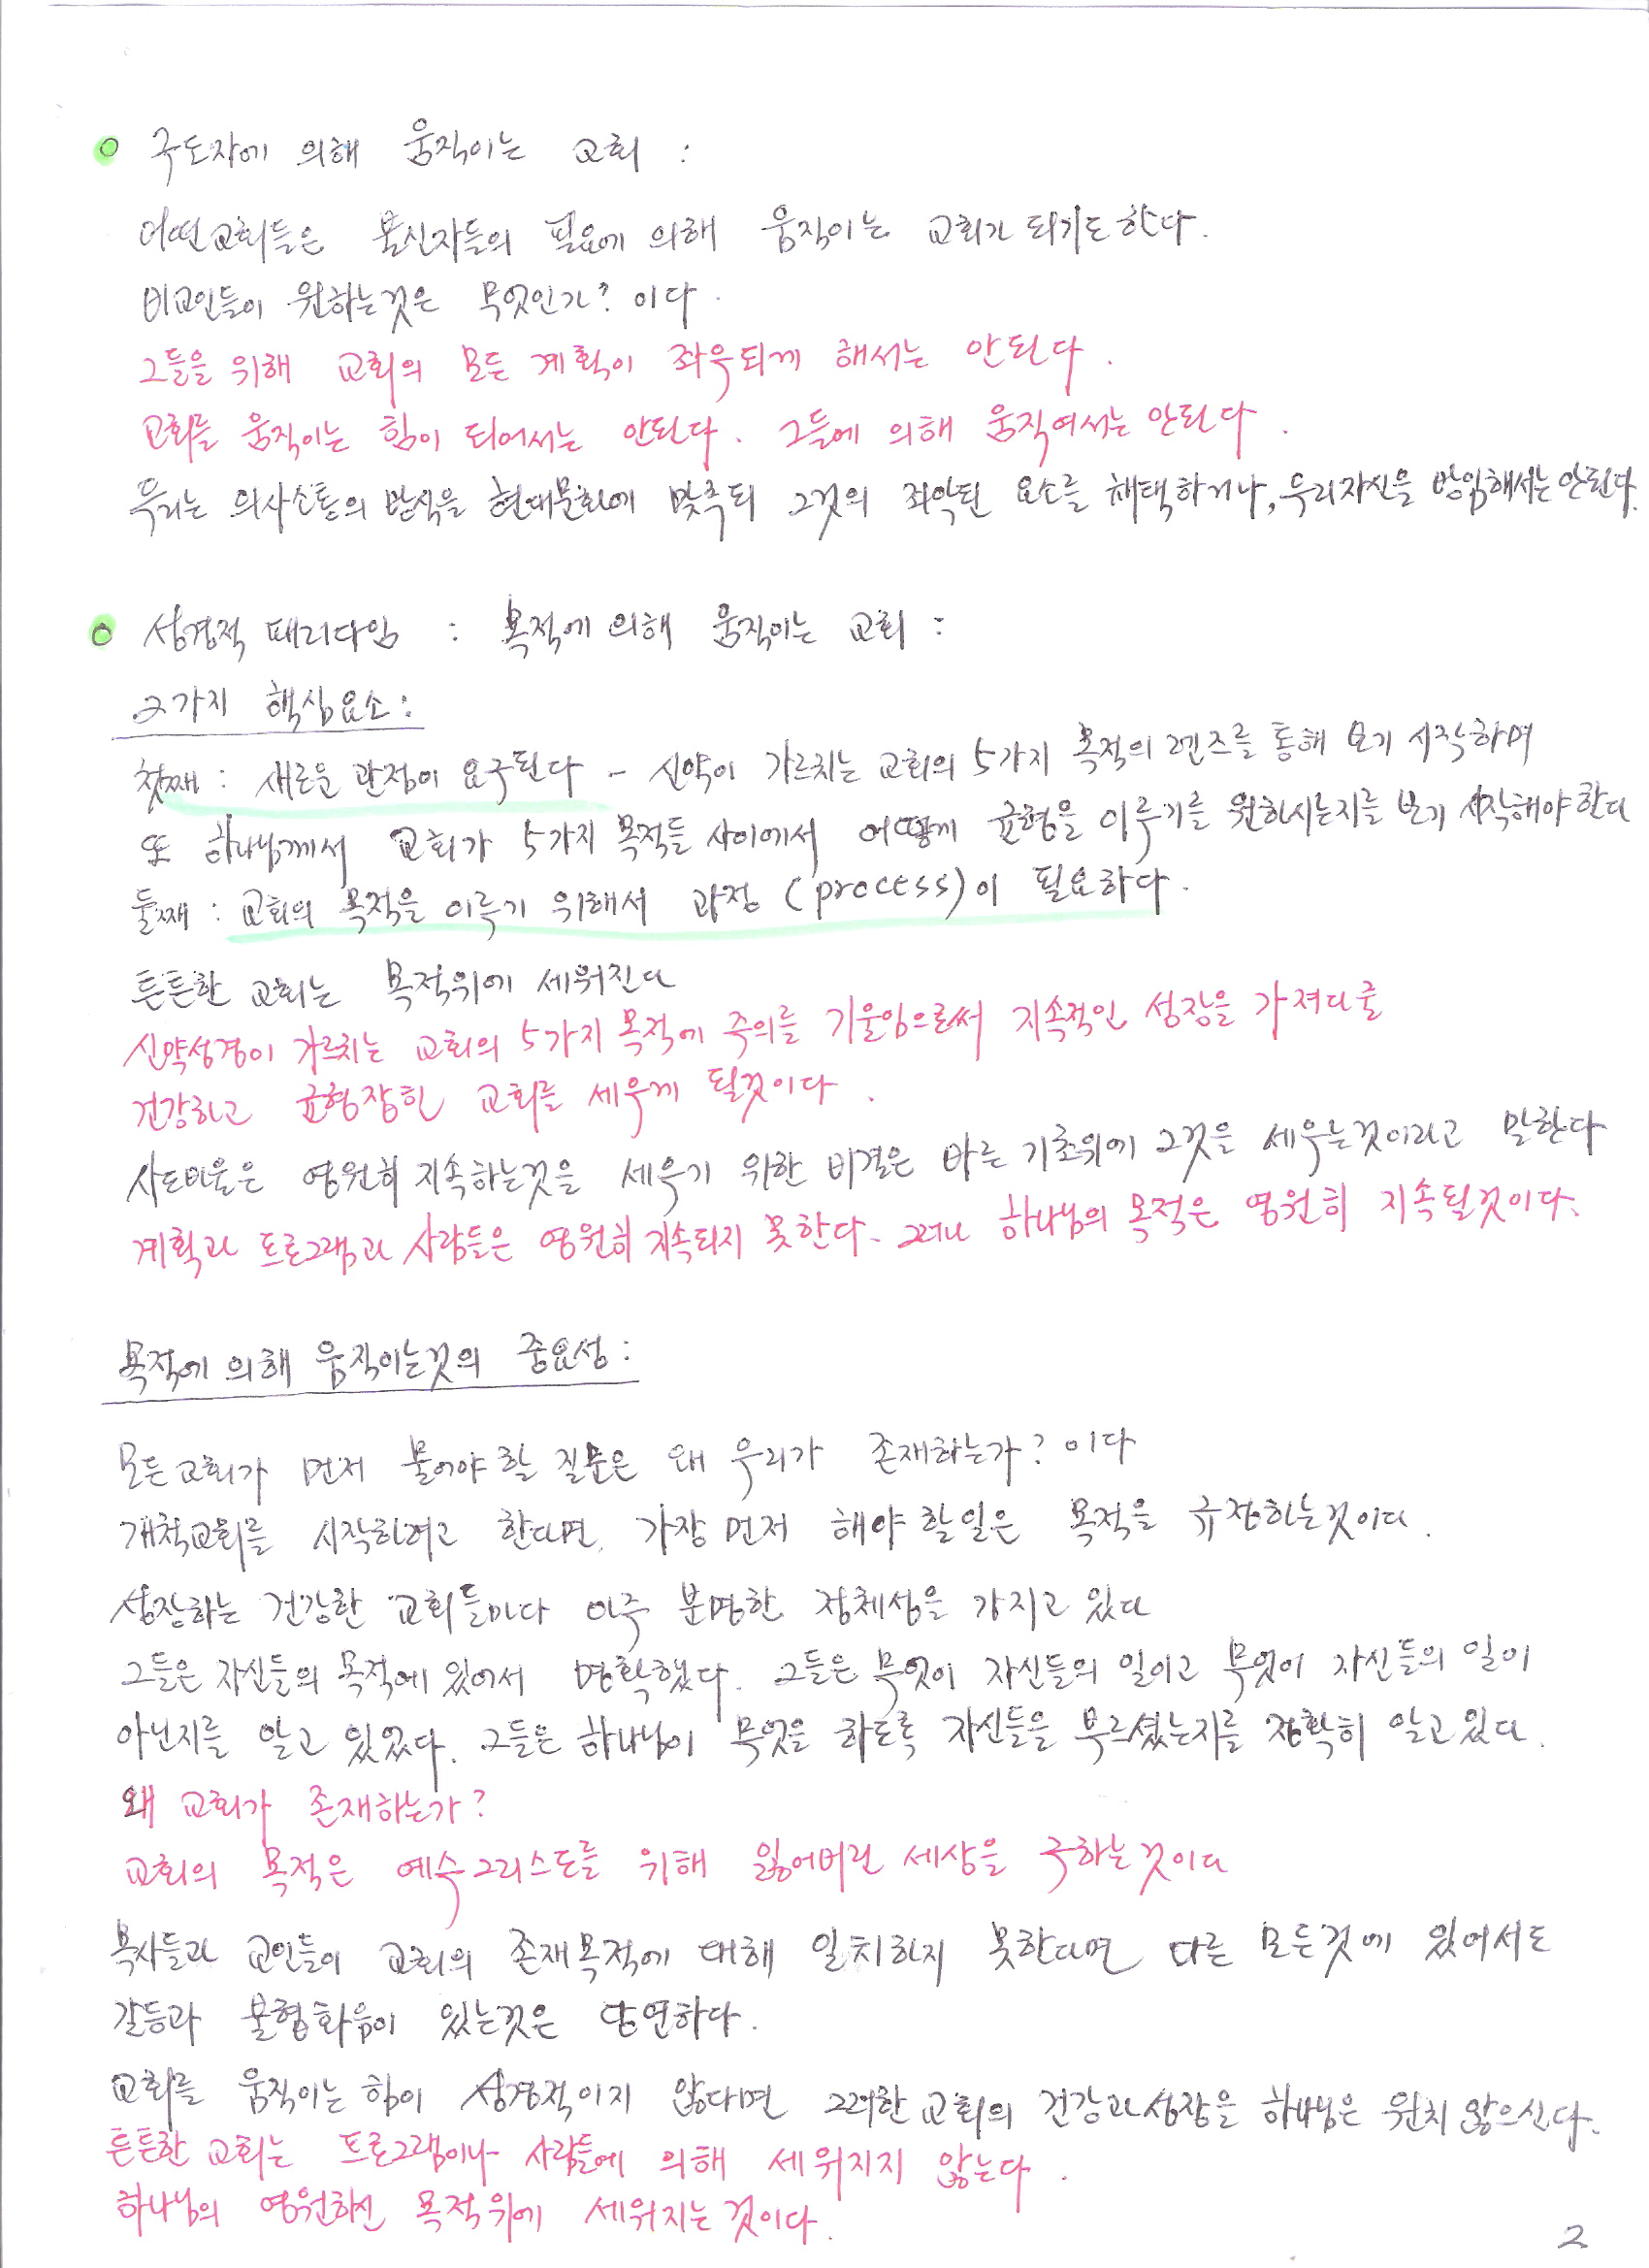 구도자에 의해 움직이는 교회 :
어떤교회들은 불신자들의 필요에 의해 움직이는 교회가 되기도한다.
비교인들이 원하는것은 무엇인가? 이다.
그들을 위해 교회의 모든 계획이 좌우되게 해서는 안된다.
교회를 움직이는 힘이 되어서는 안된다. 그들에 의해 움직여서는 안된다.
우리는 의사소통의 방식을 현대문화에 맞추되 그것의 죄악된 요소를 채택하거나, 우리자신을 방임해서는 안된다.
성경적 패러다임 : 목적에 의해 움직이는 교회 :
2가지 핵심요소:
첫째 : 새로운 관점이 요구된다 - 신약이 가르치는 교회의 5가지 목적의 렌즈를 통해 보기 시작하며
또 하나님께서 교회가 5가지 목적들 사이에서 어떻게 균형을 이루기를 원하시는지를 보기 시작해야한다
둘째 : 교회의 목적을 이루기 위해서 과정 (process)이 필요하다.
튼튼한 교회는 목적위에 세워진다
신약성경이 가르치는 교회의 5가지 목적에 주의를 기울임으로써 지속적인 성장을 가져다줄
건강하고 균형잡힌 교회를 세우게 될것이다.
사도바울은 영원히 지속하는것을 세우기 위한 비결은 바른 기초위에 그것을 세우는것이라고 말한다
계획과 프로그램과 사람들은 영원히 지속되지 못한다. 그러나 하나님의 목적은 영원히 지속될것이다.
목적에 의해 움직이는것의 중요성 :
모든교회가 먼저 물어야 할 질문은 왜 우리가 존재하는가? 이다
개척교회를 시작하려고 한다면, 가장 먼저 해야 할일은 목적을 규정하는것이다.
성장하는 건강한 교회들마다 아주 분명한 정체성을 가지고 있다
그들은 자신들의 목적에 있어서 명확했다. 그들은 무엇이 자신들의 일이고 무엇이 자신들의 일이
아닌지를 알고 있었다. 그들은 하나님이 무엇을 하도록 자신들을 부르셨는지를 정확히 알고있다.
왜 교회가 존재하는가?
교회의 목적은 예수그리스도를 위해 잃어버린 세상을 구하는것이다
목사들과 교인들이 교회의 존재목적에 대해 일치하지 못한다면 다른 모든것에 있어서도
갈등과 불협화음이 있는것은 당연하다.
교회를 움직이는 힘이 성경적이지 않다면 그러한 교회의 건강과성장을 하나님은 원치 않으신다.
튼튼한 교회는 프로그램이나 사람들에 의해 세워지지 않는다.
하나님의 영원하신 목적위에 세워지는 것이다.
2